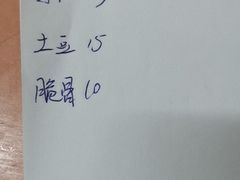 土豆 15
脆冒 10